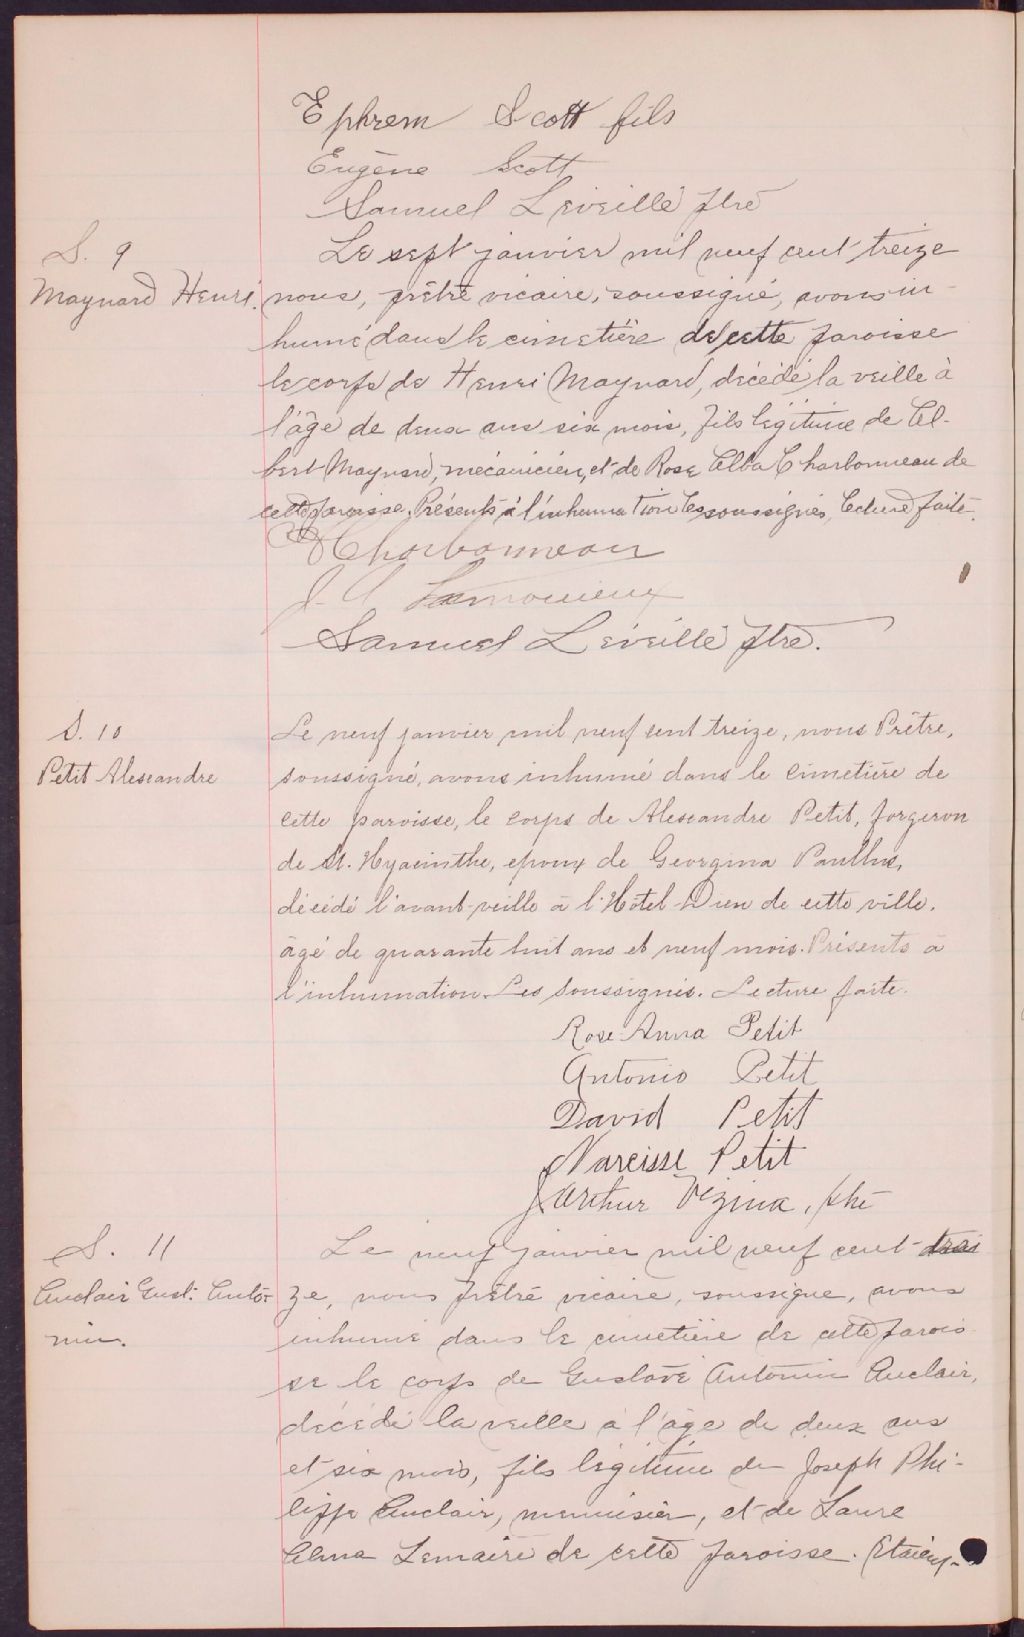 Ephrem Scott fils
Eugène Scott
Samuel Léveillé ptre
S. 9
Maynard Henri.
Le sept janvier mil neuf cent treize
nous, prêtre vicaire, soussigné, avons in-
humé dans le cimetière de cette paroisse
le corps de Henri Maynard, décédé la veille à
l'âge de deux ans six mois, fils légitime de Al-
bert Maynard, mécanicien, et de Rose Alba Charbonneau de
cette paroisse. Présents à l'inhumation les soussignés. Lecture faite.
Charbonneau
J. A. Lamoureux
Samuel Léveillé ptre.
S. 10
Petit Alexandre
Le neuf janvier mil neuf cent treize, nous Prêtre,
soussigné, avons inhumé dans le cimetière de
cette paroisse, le corps de Alexandre Petit, forgeron
de St. Hyacinthe, epoux de Georgina Paulhus,
décédé l'avant-veille à l'Hôtel-Dieu de cette ville,
âgé de quarante huit ans et neuf mois. Présents à
l'inhumation. Les soussignés. Lecture faite.
Rose-Anna Petit
Antonio Petit
David Petit
Narcisse Petit
J Arthur Vézina, ptre
S. 11
Auclair Gust. Anto-
nin.
Le neuf janvier mil neuf cent trei
ze, nous prêtre vicaire, soussigné, avons
inhumé dans le cimetière de cette parois
se le corps de Gustave Antonin Auclair,
décédé la veille à l'âge de deux ans
et six mois, fils légitime de Joseph Phi-
lippe Auclair, menuisier, et de Laure
Alma Lemaire de cette paroisse. Etaient